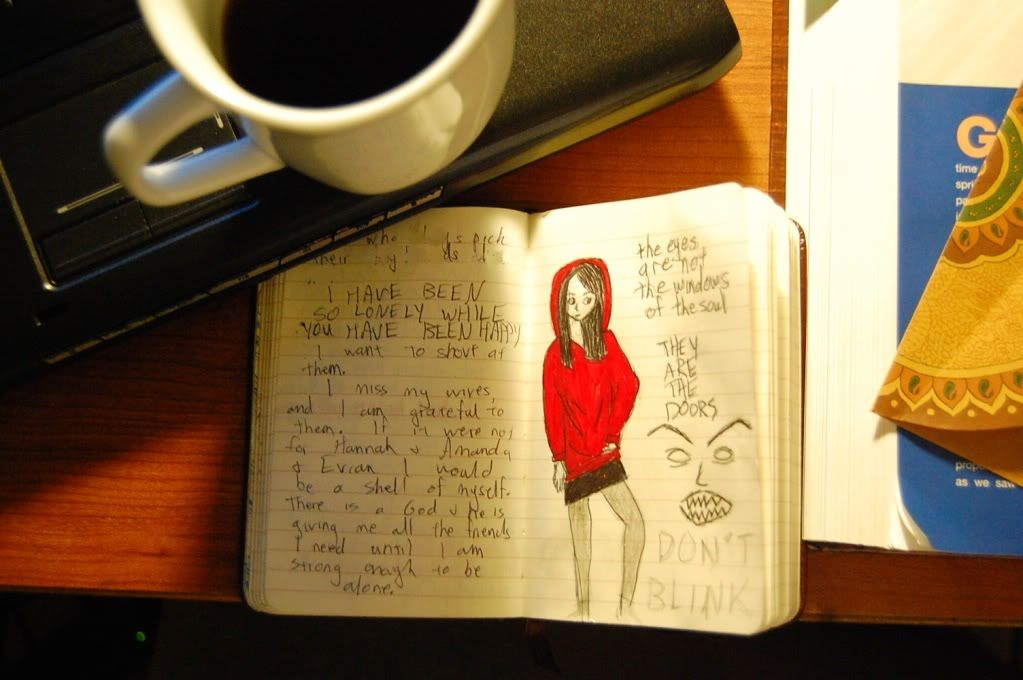 who
pick
their
"I HAVE BEEN
SO LONELY WHILE
YOU HAVE BEEN HAPPY
I want to shout at
them.
I miss my wives,
and I am grateful to
them. If it were not
for Hannah & Amanda
& Evian I would
be a shell of myself.
There is a God & He is
giving me all the friends
I need until I am
strong enough to be
alone.
the eyes
are not
the windows
of the soul
THEY
ARE
THE
DOORS
DON'T
BLINK
G
time
spri
pa
propo
as we saw